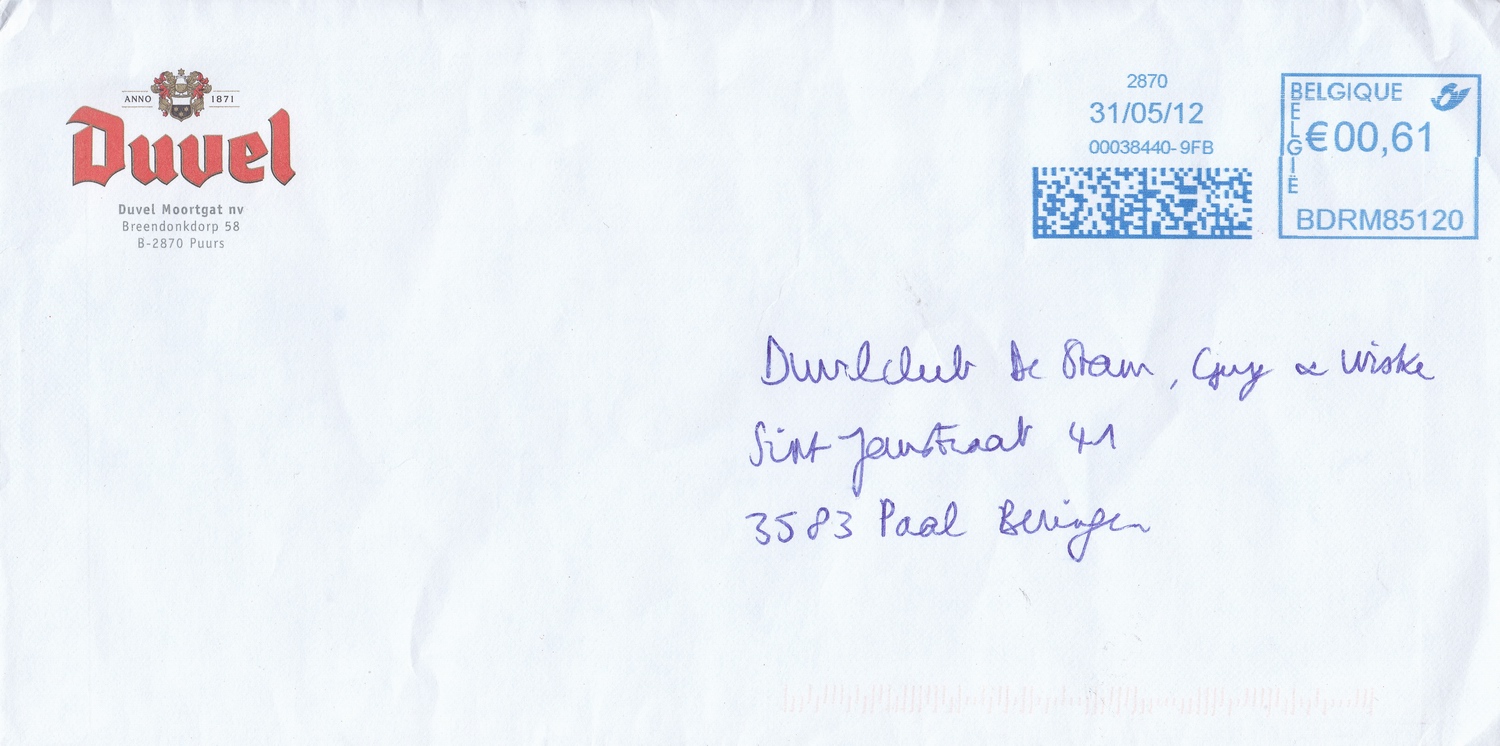 ANNO 1871
Duvel
Duvel Moortgat nv
Breendonkdorp 58
B-2870 Puurs
2870
31/05/12
00038440-9FB
BELGIQUE
BELGIË
€00,61
BDRM85120
Duvelclub De Stam, Guy & Wiske
Sint Janstraat 41
3583 Paal Beringen